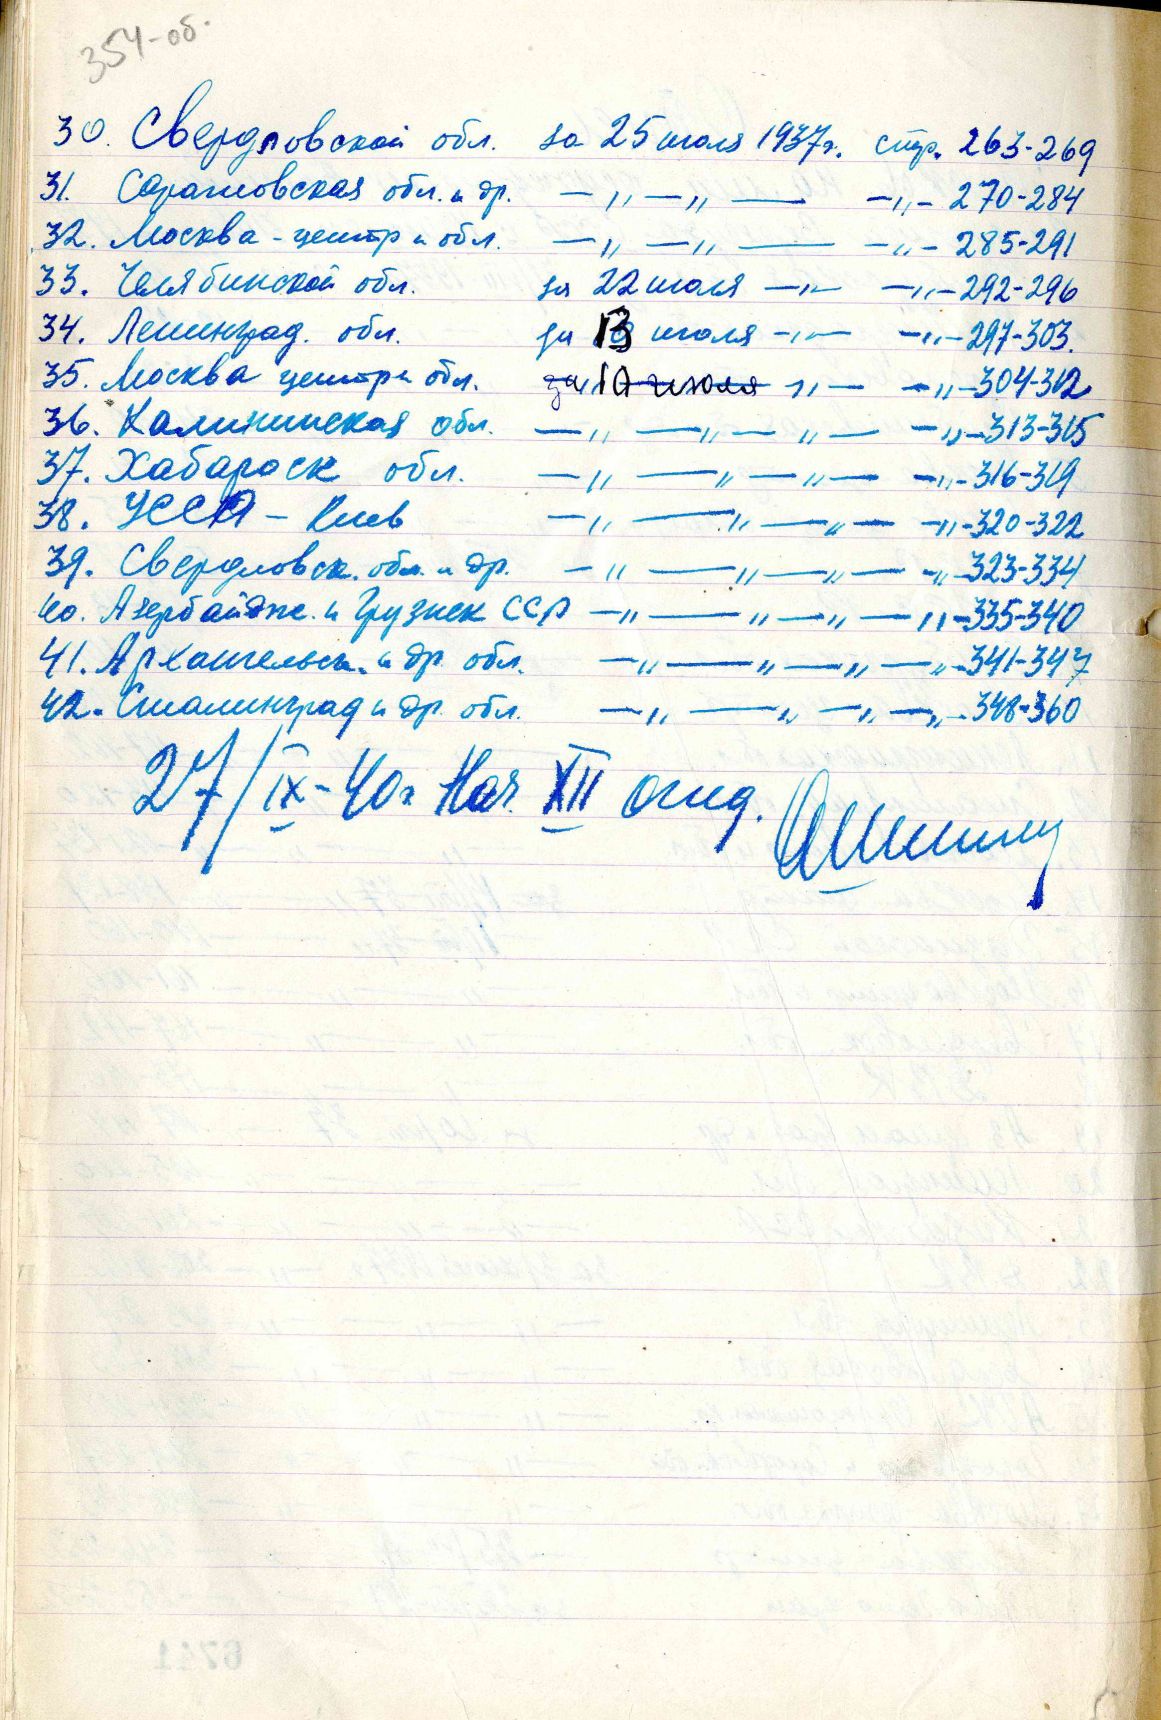 354-об.
30. Свердловской обл. за 25 июля 1937г. стр. 263-269
31. Саратовская обл. и др. — „ — „ — — „ — 270-284
32. Москва - центр и обл. — „ — „ — — „ — 285-291
33. Челябинской обл. за 22 июля — „ — — „ — 292-296
34. Ленинград. обл. за 13 июля — „ — — „ — 297-303.
35. Москва центр и обл. за 10 июля „ — — „ — 304-312
36. Калининская обл. — „ — „ — „ — — „ — 313-315
37. Хабаровск обл. — „ — „ — „ — — „ — 316-319
38. УССР - Киев — „ — „ — „ — — „ — 320-322
39. Свердловск. обл. и др. — „ — „ — „ — — „ — 323-334
40. Азербайдж. и Грузнск ССР — „ — „ — „ — „ — 335-340
41. Архангельск. и др. обл. — „ — „ — „ — „ — 341-347
42. Сталинград и др. обл. — „ — „ — „ — „ — 348-360
27/IX-40г Нач. XII отд.